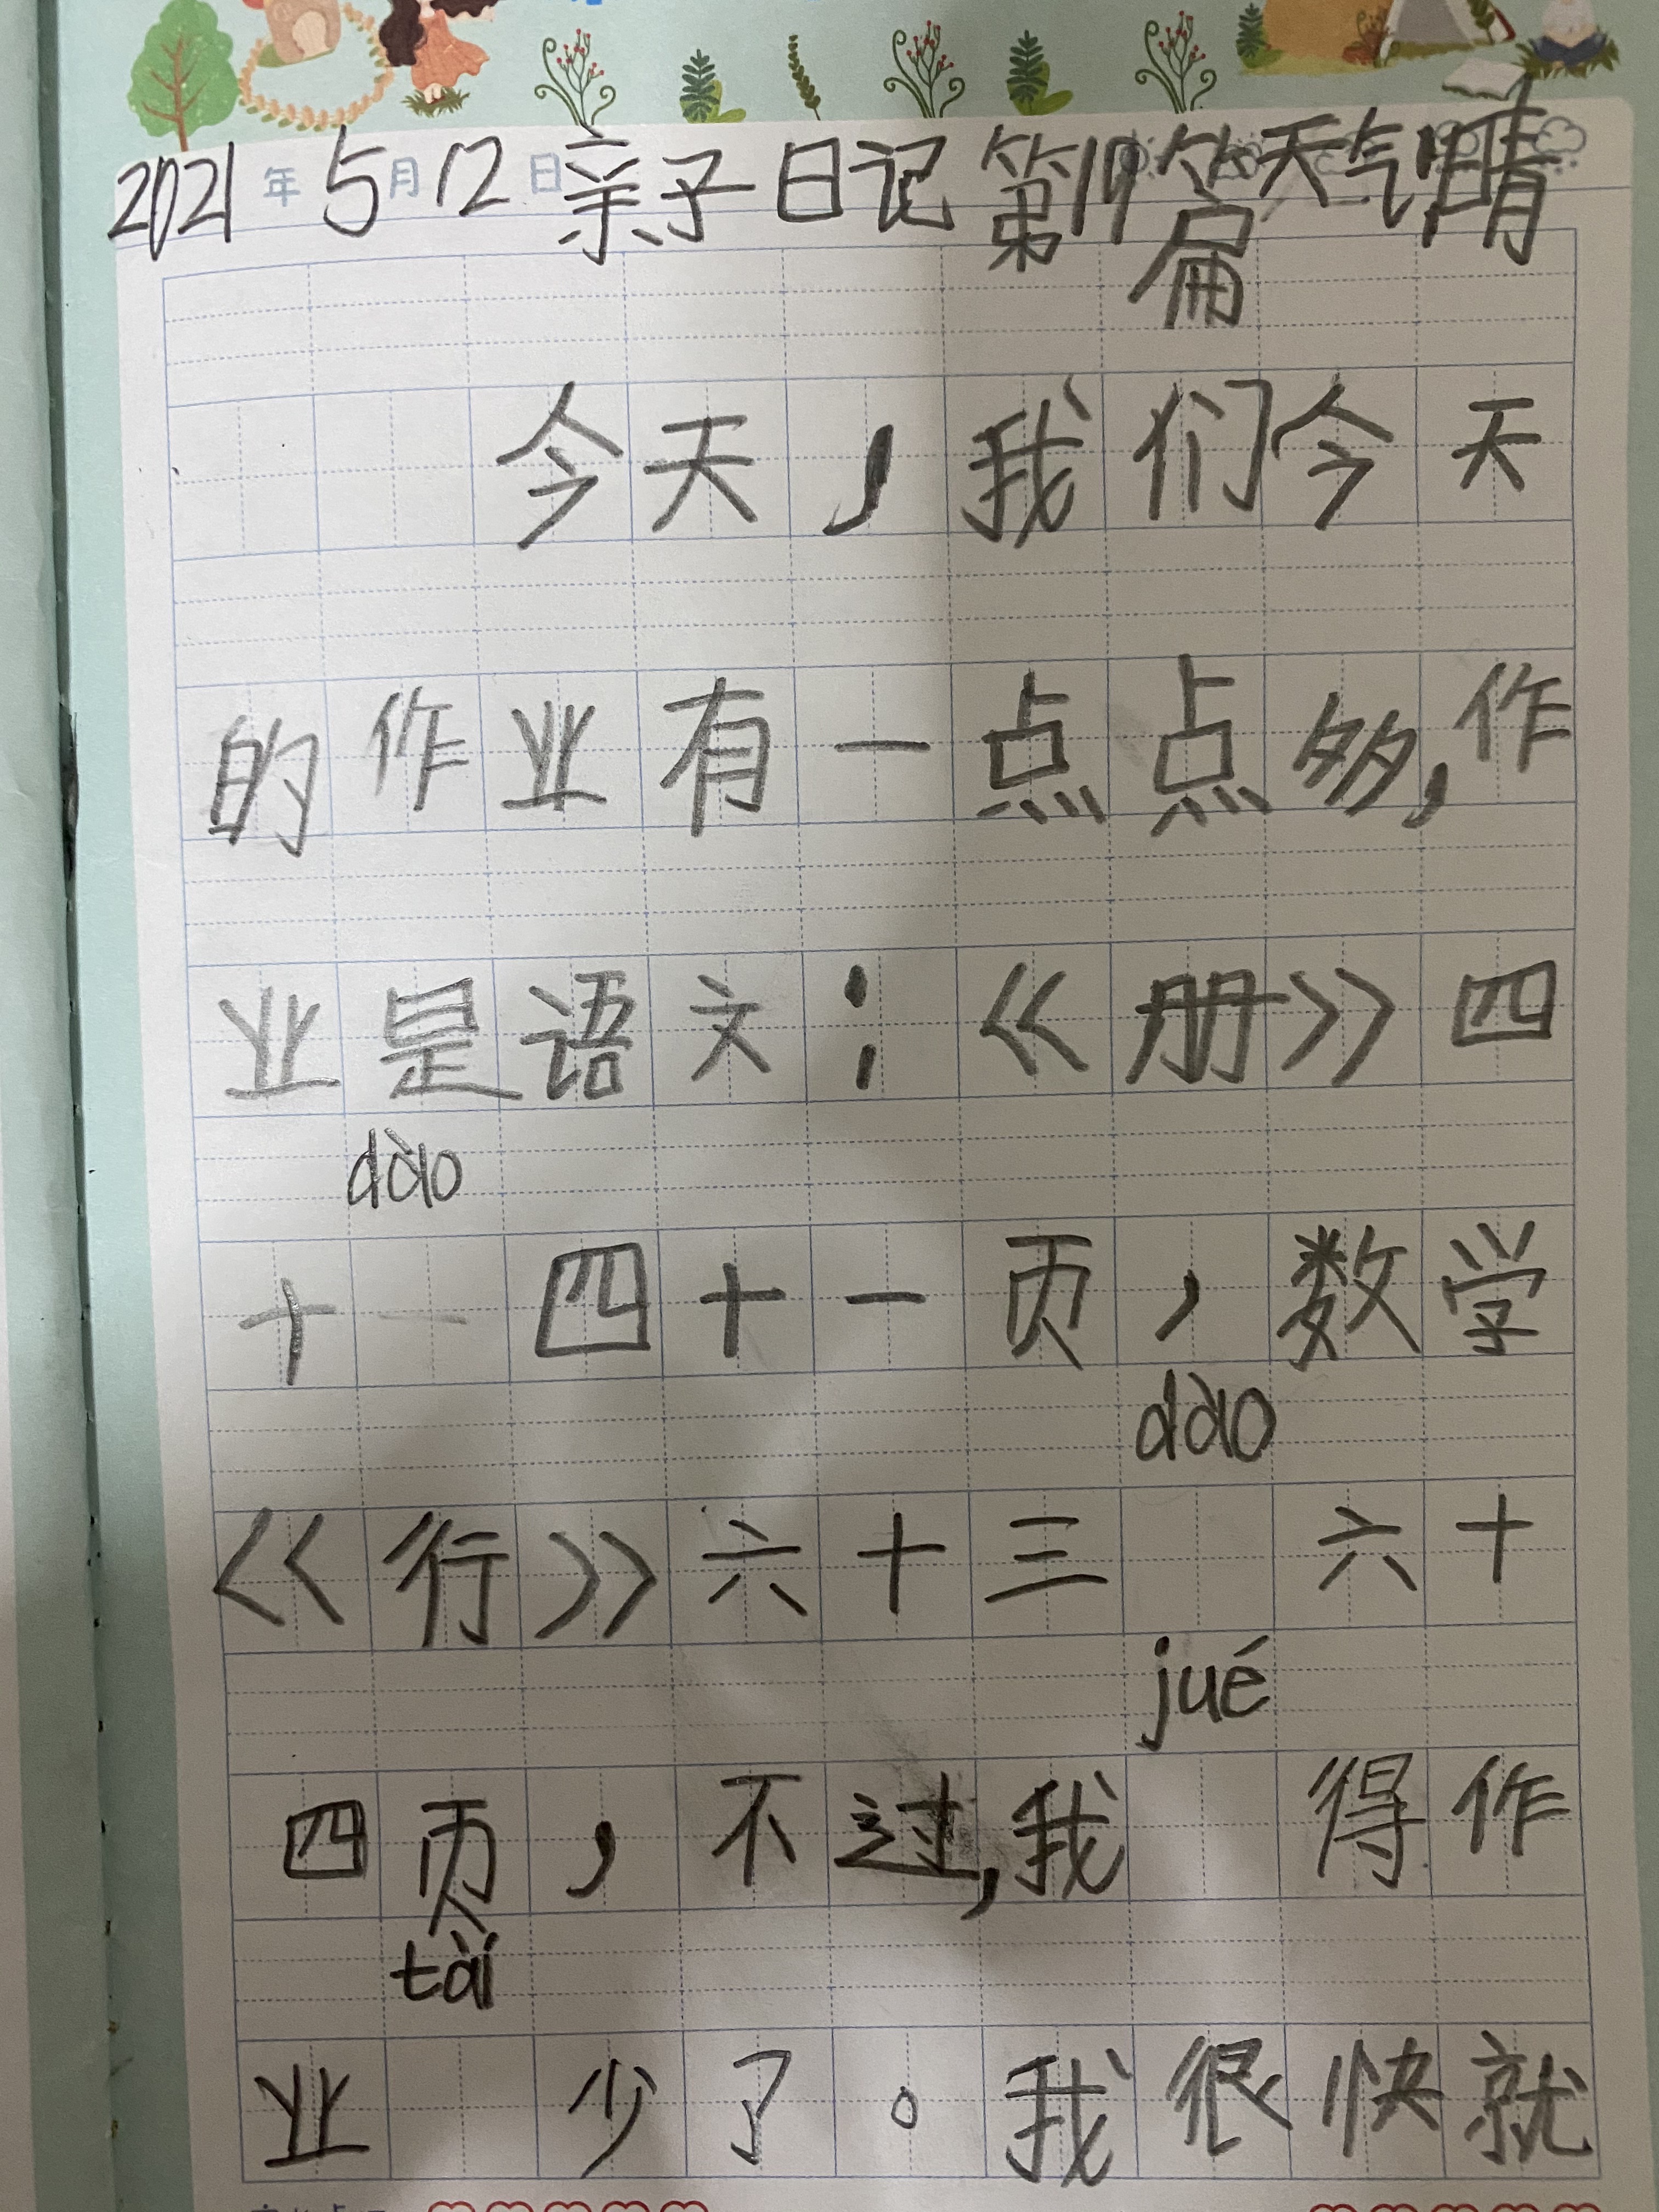 2021年5月12日亲子日记第19篇天气:晴
今天,我们今天
的作业有一点点多,作
业是语文:《册》四
dào
十一四十一页,数学
dào
《行》六十三 六十
jué
四页,不过,我 得作
tài
业 少了。我很快就